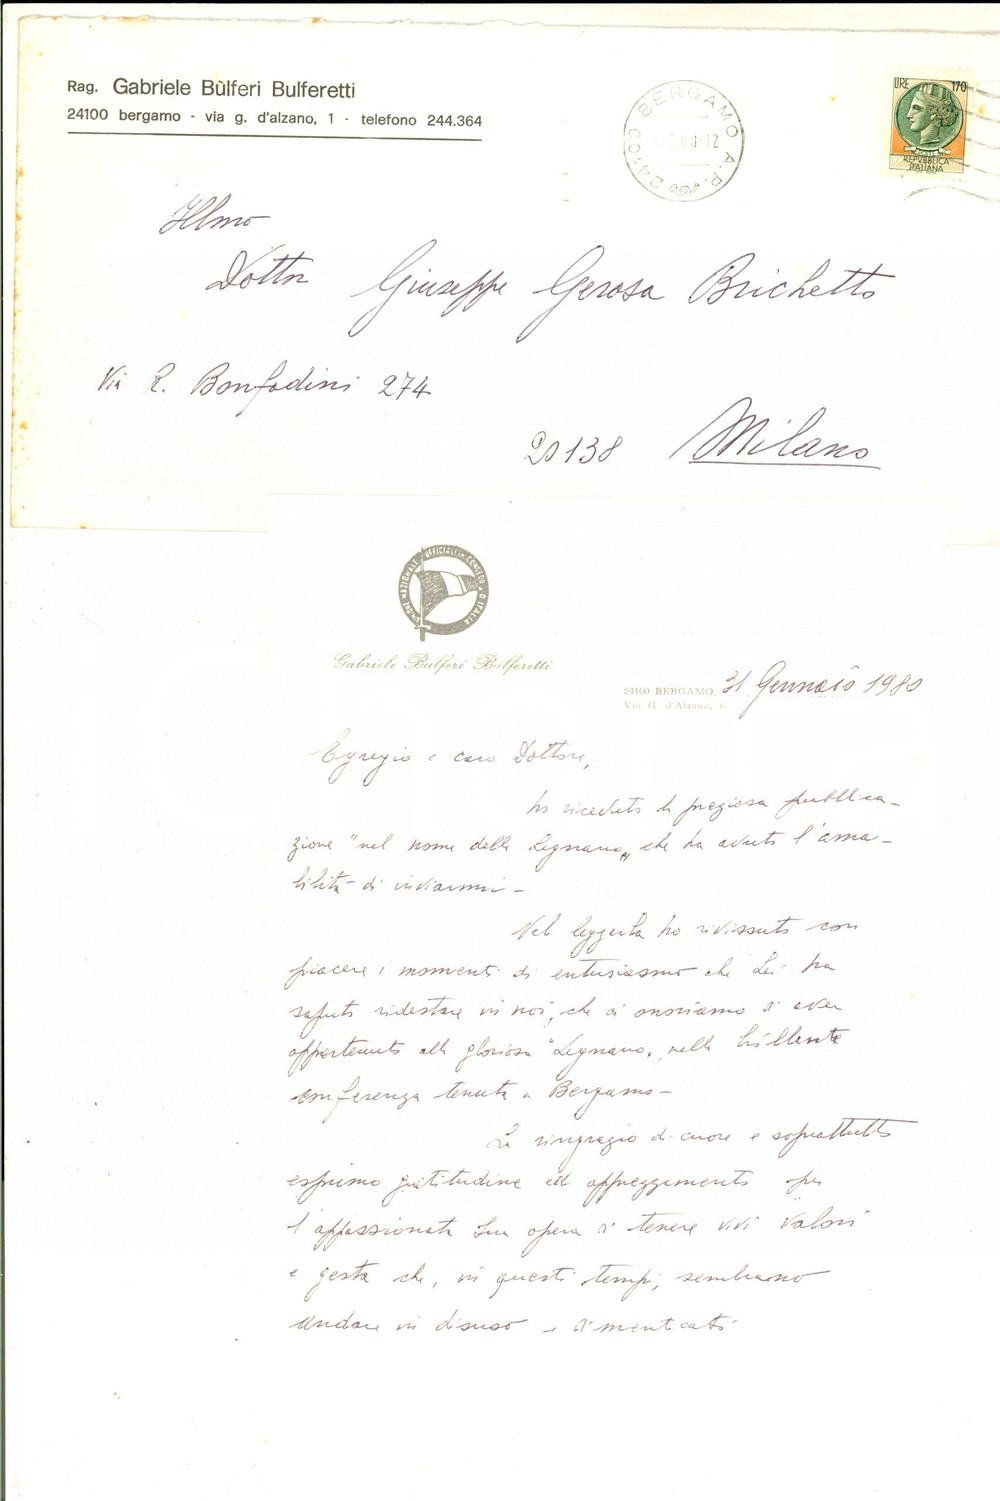 Rag. Gabriele Bùlferi Bulferetti
24100 bergamo - via g. d'alzano, 1 - telefono 244.364
24100 BERGAMO A.P.
80-12
LIRE 170
POSTE
REPVBBLICA
ITALIANA
Illmo
Dottor Giuseppe Gerosa Brichetto
Via R. Bonfadini 274
20138 Milano
UNIONE NAZIONALE UFFICIALI IN CONGEDO D'ITALIA
Gabriele Bulferi Bulferetti
24100 BERGAMO, 31 Gennaio 1980
Via G. d'Alzano, 6
Egregio e caro Dottore,
ho ricevuto la preziosa pubblica-
zione "nel nome della Legnano", che ha avuto l'ama-
bilità di inviarmi -
Nel leggerla ho rivissuto con
piacere i momenti di entusiasmo che Lei ha
saputo ridestare in noi, che ci onoriamo di aver
appartenuto alla gloriosa "Legnano", nella brillante
conferenza tenuta a Bergamo -
La ringrazio di cuore e soprattutto
esprimo gratitudine ed apprezzamento per
l'appassionata Sua opera di tenere vivi valori
e gesta che, in questi tempi, sembrano
andare in disuso e dimenticati